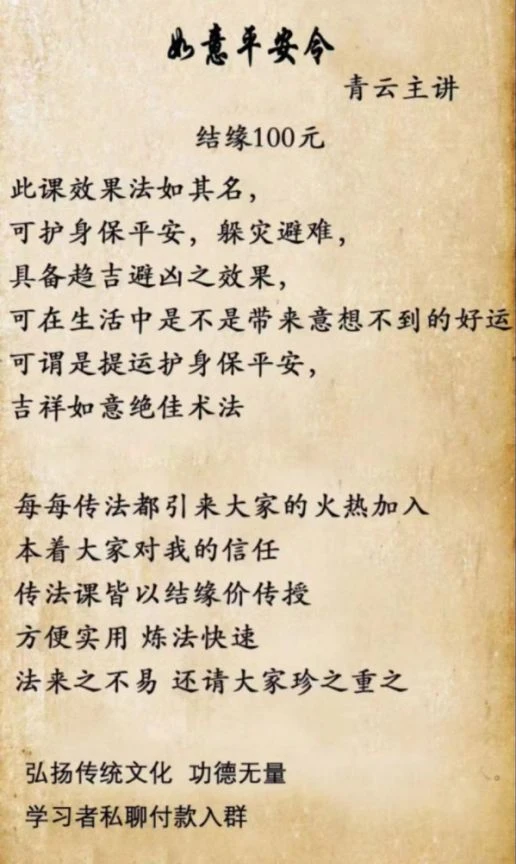 如意平安令
青云主讲
结缘100元
此课效果法如其名，
可护身保平安，躲灾避难，
具备趋吉避凶之效果，
可在生活中是不是带来意想不到的好运
可谓是提运护身保平安，
吉祥如意绝佳术法
每每传法都引来大家的火热加入
本着大家对我的信任
传法课皆以结缘价传授
方便实用 炼法快速
法来之不易 还请大家珍之重之
弘扬传统文化 功德无量
学习者私聊付款入群